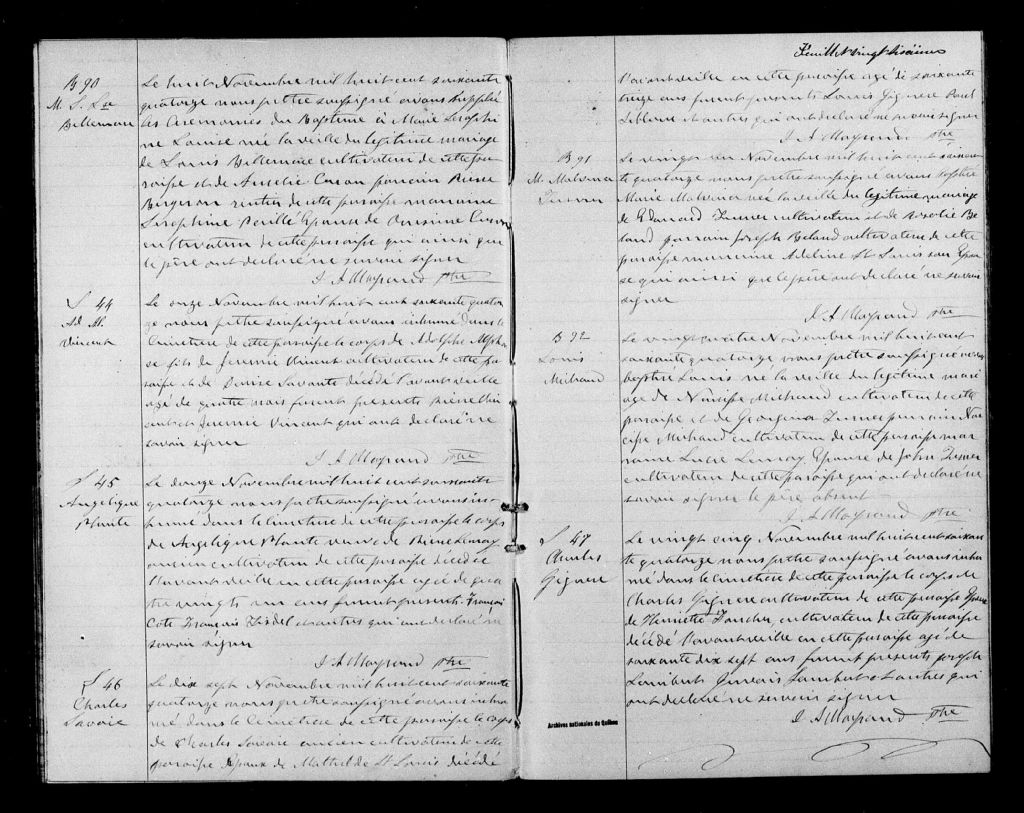 B 90
M. S. Lse
Bellemare
Le huit Novembre mil huit cent soixante
quatorze nous prêtre soussigné avons supplée
les Ceremonies du Bapteme à Marie Joséphi
ne Louise née la veille du legitime mariage
de Louis Bellemare cultivateur de cette pa
roisse et de Amelie Caron parrain Pierre
Bergeron rentier de cette paroisse marraine
Josephine Epouse de Onesime Caron
cultivateur de cette paroisse qui ainsi que
le père ont declaré ne savoir signer
J. A Mayrand Ptre
S 44
Ad Al.
Vincent
Le onze Novembre mil huit cent soixante quator
ze nous prêtre soussigné avons inhumé dans le
Cimetiere de cette paroisse le corps de Adolphe Alphon
se fils de Jeremie Vincent cultivateur de cette pa
roisse et de Denise Savoie décédé l'avant veille
agé de quatre mois furent presents Pierre Vin
cent et Jeremie Vincent qui ont declaré ne
savoir signer
J. A Mayrand Ptre
S 45
Angelique
Plante
Le douze Novembre mil huit cent soixante
quatorze nous prêtre soussigné avons in
humé dans le cimetiere de cette paroisse le corps
de Angelique Plante veuve de Pierre Lemay
ancien cultivateur de cette paroisse décédée
l'avant veille en cette paroisse agée de qua
tre vingts un ans furent presents François
Coté François et autres qui ont declaré ne
savoir signer
J. A Mayrand Ptre
S 46
Charles
Savoie
Le dix sept Novembre mil huit cent soixante
quatorze nous prêtre soussigné avons inhu
mé dans le Cimetiere de cette paroisse le corps
de Charles Savoie ancien cultivateur de cette
paroisse Epoux de St Louis décédé
Feuillet vingt sixième
l'avant veille en cette paroisse agé de soixante
treize ans furent presents Louis Gignere Paul
Leblanc et autres qui ont declaré ne savoir signer
J. A Mayrand Ptre
B 91
M. Malvina
Le vingt un Novembre mil huit cent soixan
te quatorze nous prêtre soussigné avons baptisé
Marie Malvina née la veille du legitime mariage
de Edouard cultivateur et de Rosalie Be
land parrain Joseph Beland cultivateur de cette
paroisse marraine Adeline St Louis son Epou
se qui ainsi que le père ont declaré ne savoir
signer
J. A Mayrand Ptre
B 92
Louis
Michaud
Le vingt quatre Novembre mil huit cent
soixante quatorze nous prêtre soussigné avons
baptisé Louis né la veille du legitime mari
age de Narcisse Michaud cultivateur de cette
paroisse et de Georgina parrain Nar
cisse Michaud cultivateur de cette paroisse mar
raine Lucie Lemay Epouse de John
cultivateur de cette paroisse qui ont declaré ne
savoir signer le père absent
J. A Mayrand Ptre
S 47
Charles
Gignere
Le vingt sinq Novembre mil huit cent soixan
te quatorze nous prêtre soussigné avons inhu
mé dans le cimetiere de cette paroisse le corps de
Charles Gignere cultivateur de cette paroisse Epoux
de Henriette cultivateur de cette paroisse
décédé l'avant veille en cette paroisse agé de
soixante dix sept ans furent presents Joseph
Lambert Gervais Lambert et autres qui
ont declaré ne savoir signer
J. A Mayrand Ptre
Archives nationales du Québec